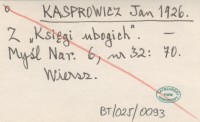 KASPROWICZ Jan 1926.
Z „Księgi ubogich". —
Myśl Nar. 6, nr 32: 70.
Wiersz.
BT/025/0093